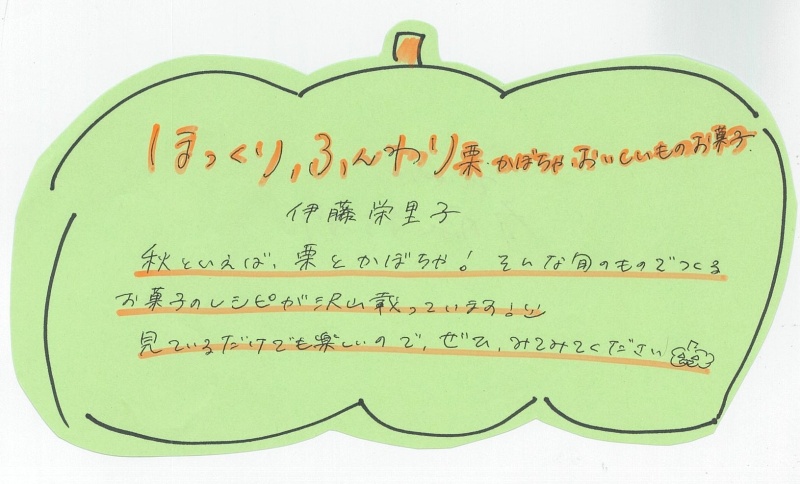 ほっくり、ふんわり栗・かぼちゃ・おいしいものお菓子
伊藤栄里子
秋といえば、栗とかぼちゃ！そんな旬のものでつくる
お菓子のレシピが沢山載っています！
見ているだけでも楽しいので、ぜひ、みてみてください